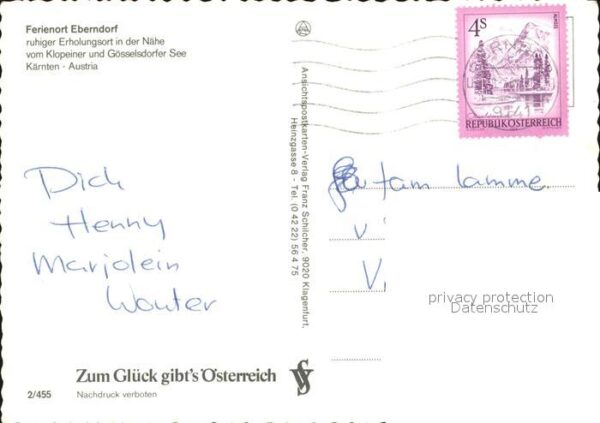 Ferienort Eberndorf
ruhiger Erholungsort in der Nähe
vom Klopeiner und Gösselsdorfer See
Kärnten - Austria
Dich
Henny
Marjolein
Wouter
Zum Glück gibt's Österreich
2/455
Nachdruck verboten
Ansichtspostkarten-Verlag Franz Schilcher, 9020 Klagenfurt,
Heinzgasse 8 - Tel. (0 42 22) 56 4 75
4S
ALMSEE
REPUBLIK ÖSTERREICH
fam lamme
v
V.
privacy protection
Datenschutz